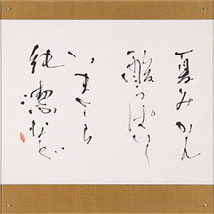 夏みかん
酸つぱい
いまさら
純潔など